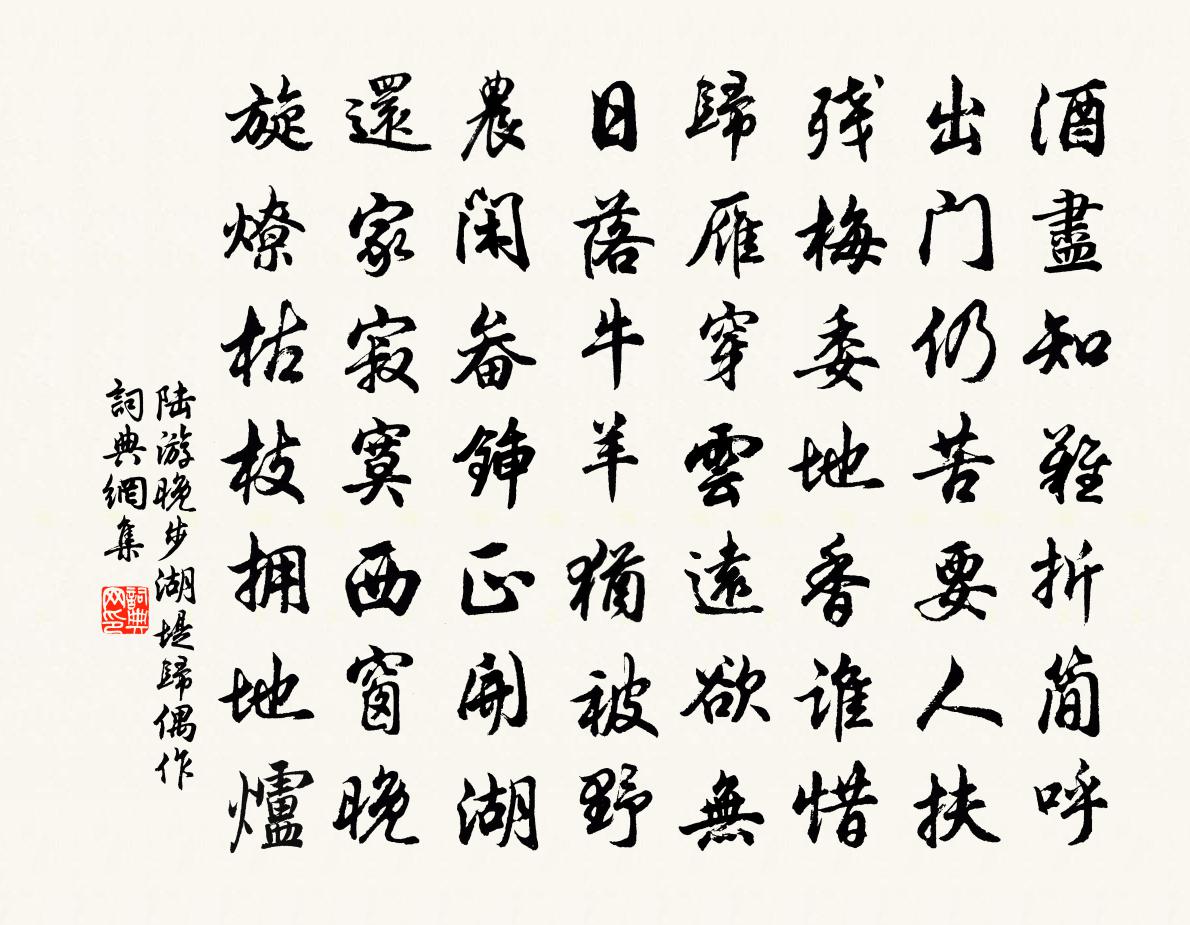 酒盡知難折简呼
出门仍苦要人扶
残梅委地香谁惜
歸雁穿雲遠欲無
日落牛羊猶被野
農閑畚鍤正開湖
還家寂寞西窗晚
旋燎枯枝拥地爐
陆游晚步湖堤歸偶作
詞典網集
詞典网印